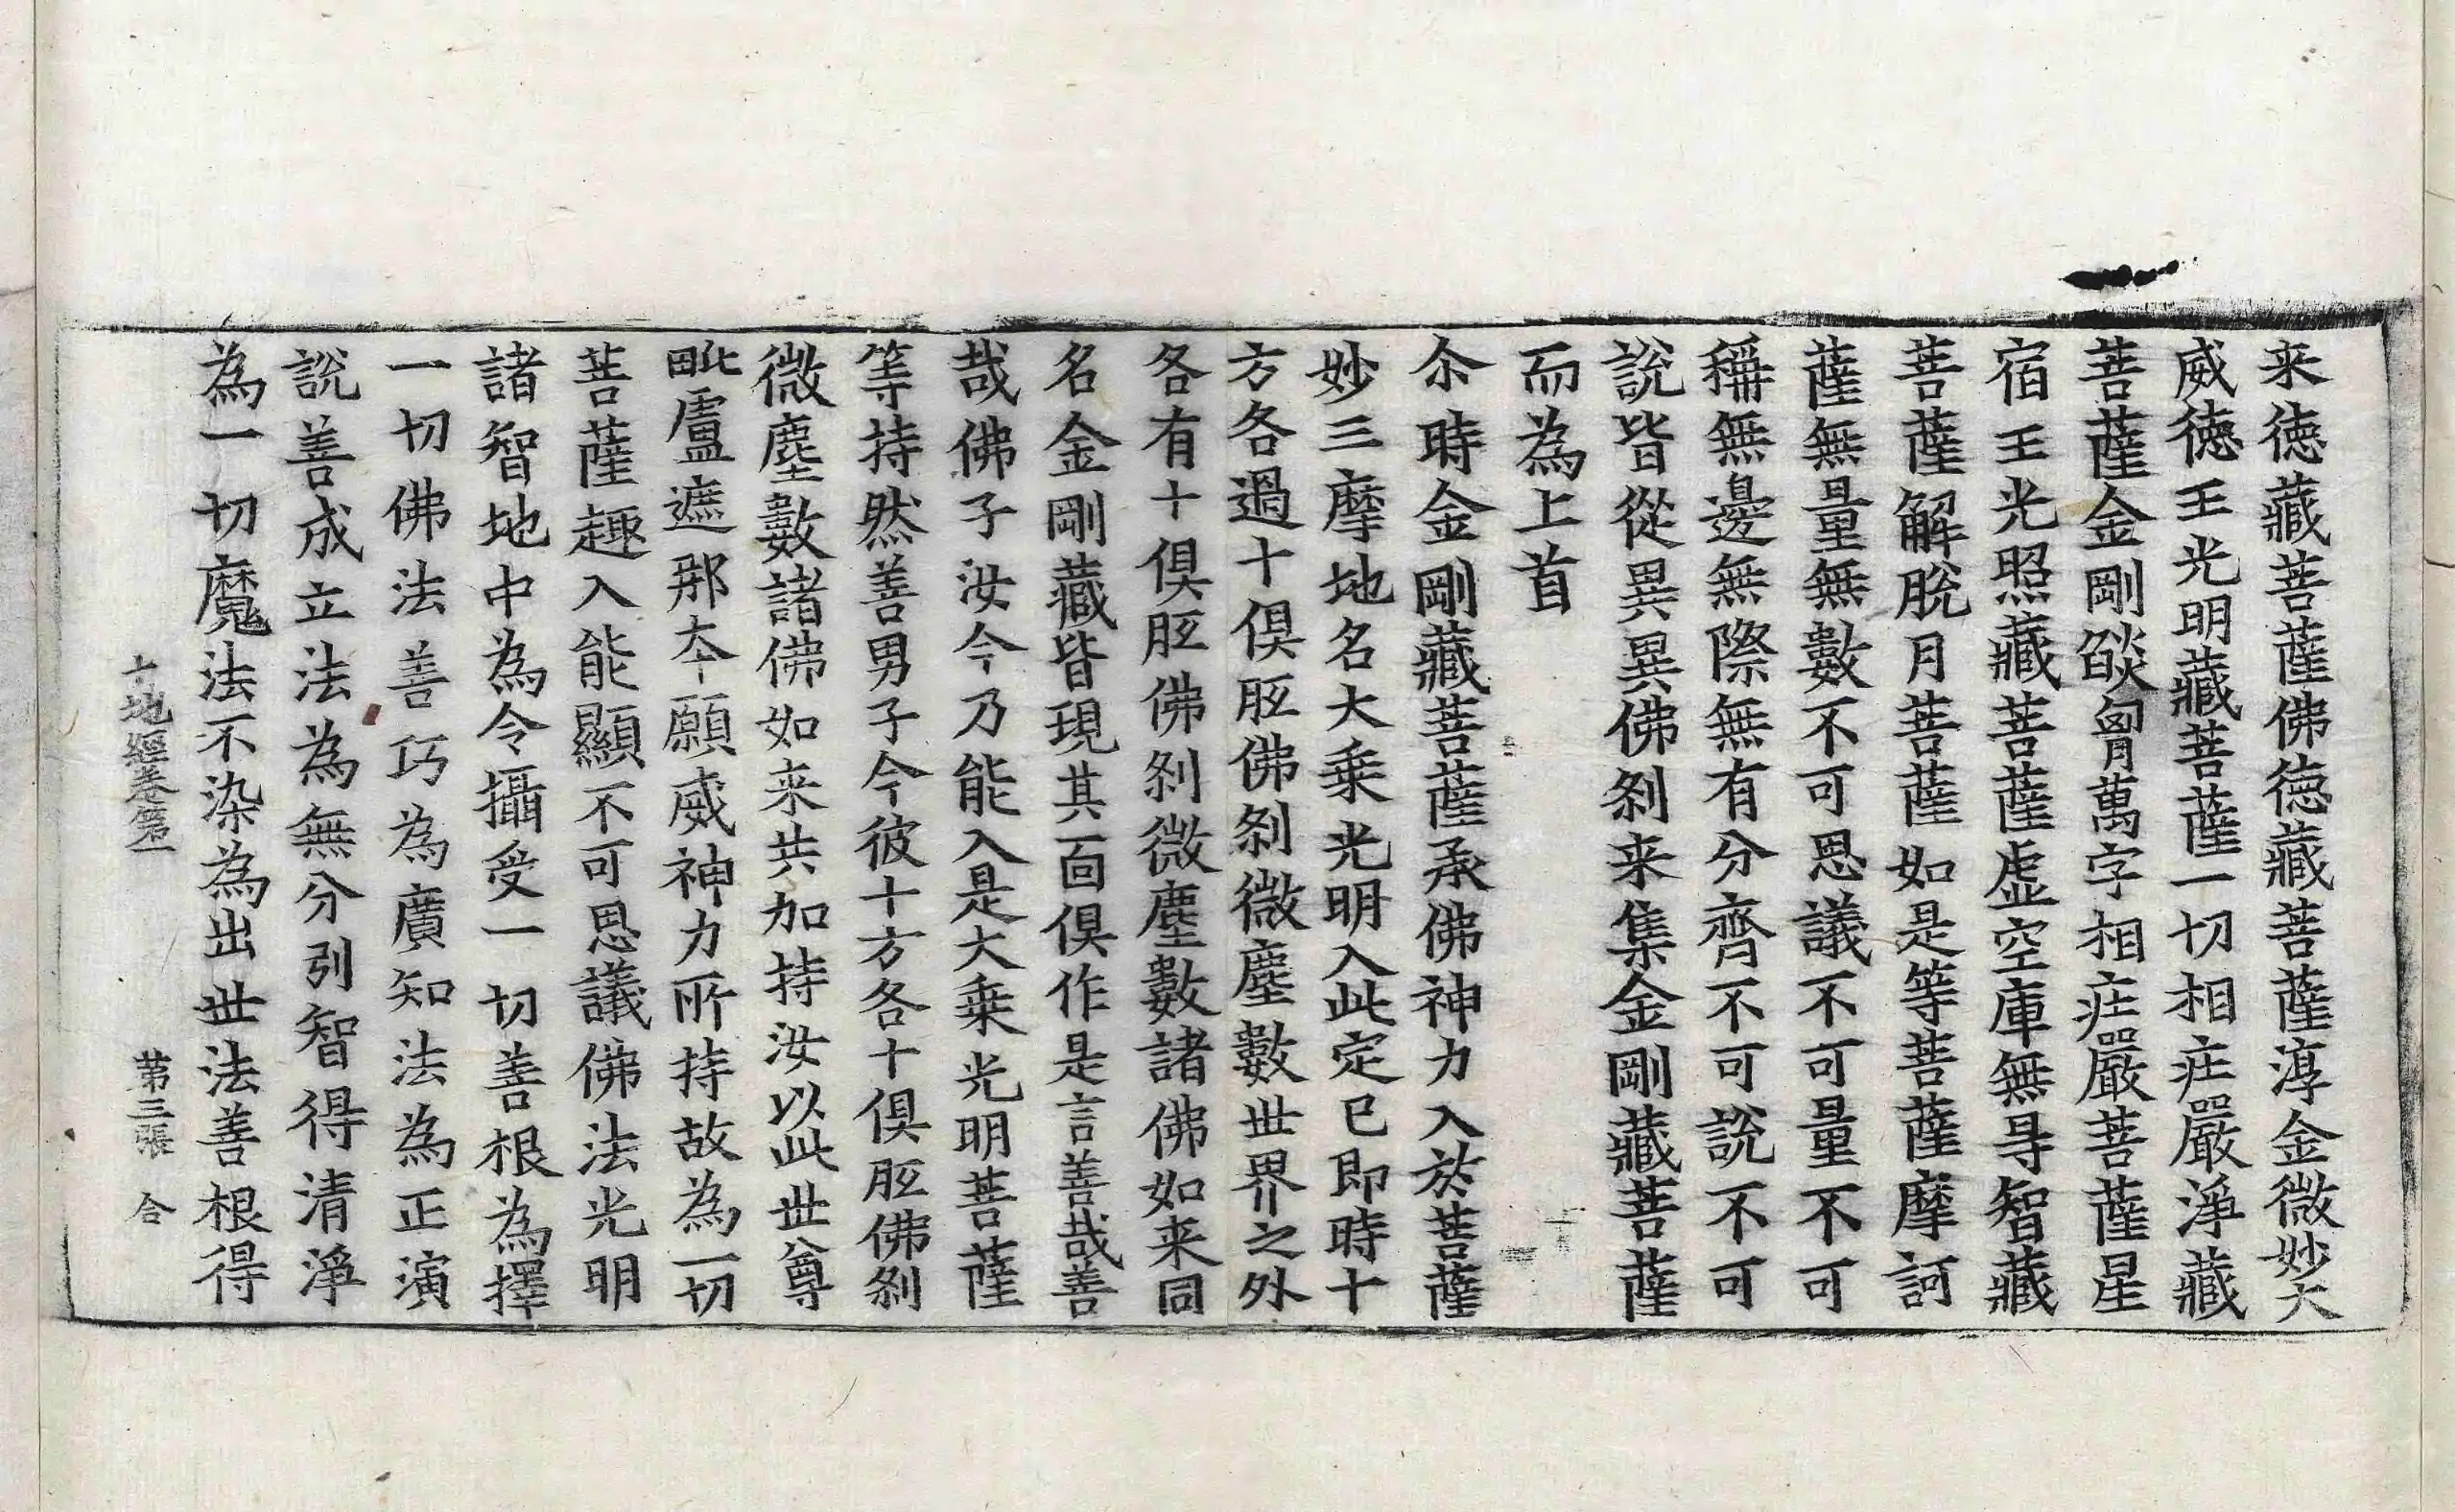 来徳藏菩薩佛徳藏菩薩淳金微妙大
威徳王光明藏菩薩一切相庄嚴淨藏
菩薩金剛焰胷萬字相庄嚴菩薩星
宿王光照藏菩薩虛空庫無㝵智藏
菩薩解脫月菩薩如是等菩薩摩訶
薩無量無數不可思議不可量不可
稱無邊無際無有分齊不可說不可
說皆從異異佛剎来集金剛藏菩薩
而為上首
尒時金剛藏菩薩承佛神力入於菩薩
妙三摩地名大乗光明入此定已即時十
方各過十俱胝佛剎微塵數世界之外
各有十俱胝佛剎微塵數諸佛如来同
名金剛藏皆現其面俱作是言善哉善
哉佛子汝今乃能入是大乗光明菩薩
等持然善男子今彼十方各十俱胝佛剎
微塵數諸佛如来共加持汝以此世尊
毗盧遮那夲願威神力所持故為一切
菩薩趣入能顯不可思議佛法光明
諸智地中為令攝受一切善根為擇
一切佛法善巧為廣知法為正演
說善成立法為無分別智得清淨
為一切魔法不染為出世法善根得
十地經卷第一 第三張 合